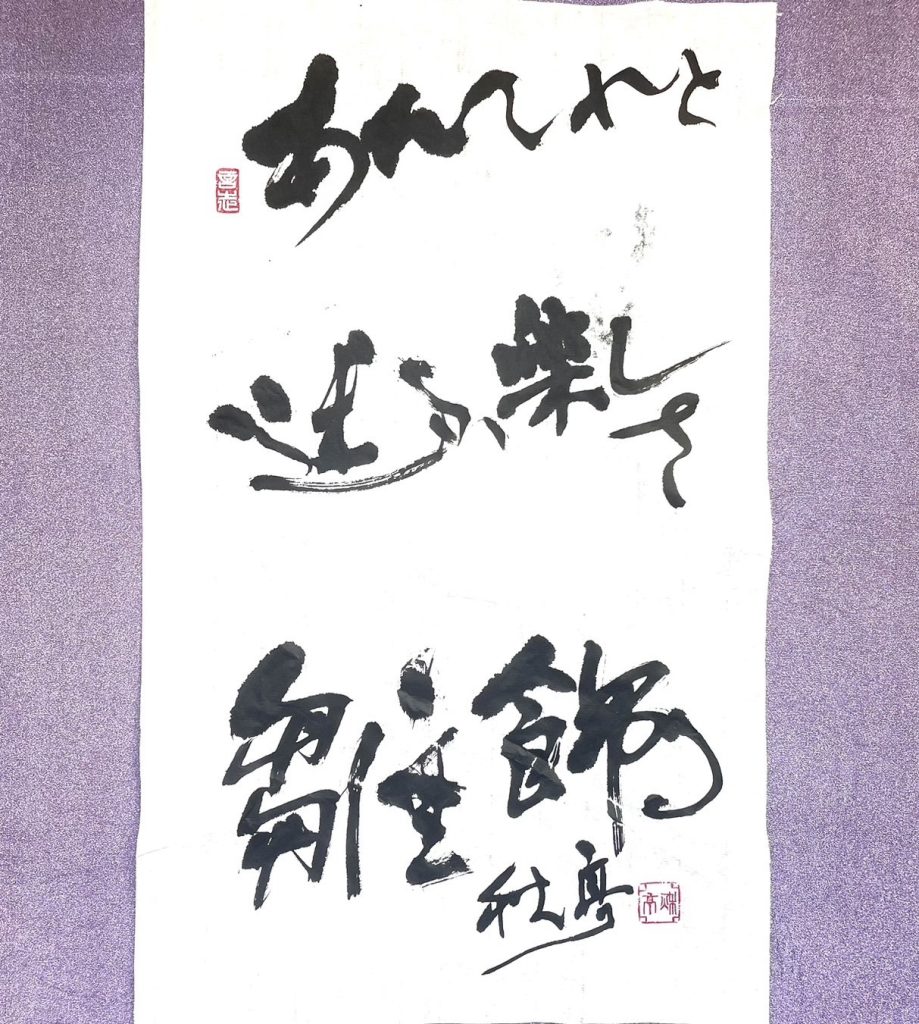 あれこれと
迷ふ楽しさ
雛飾る